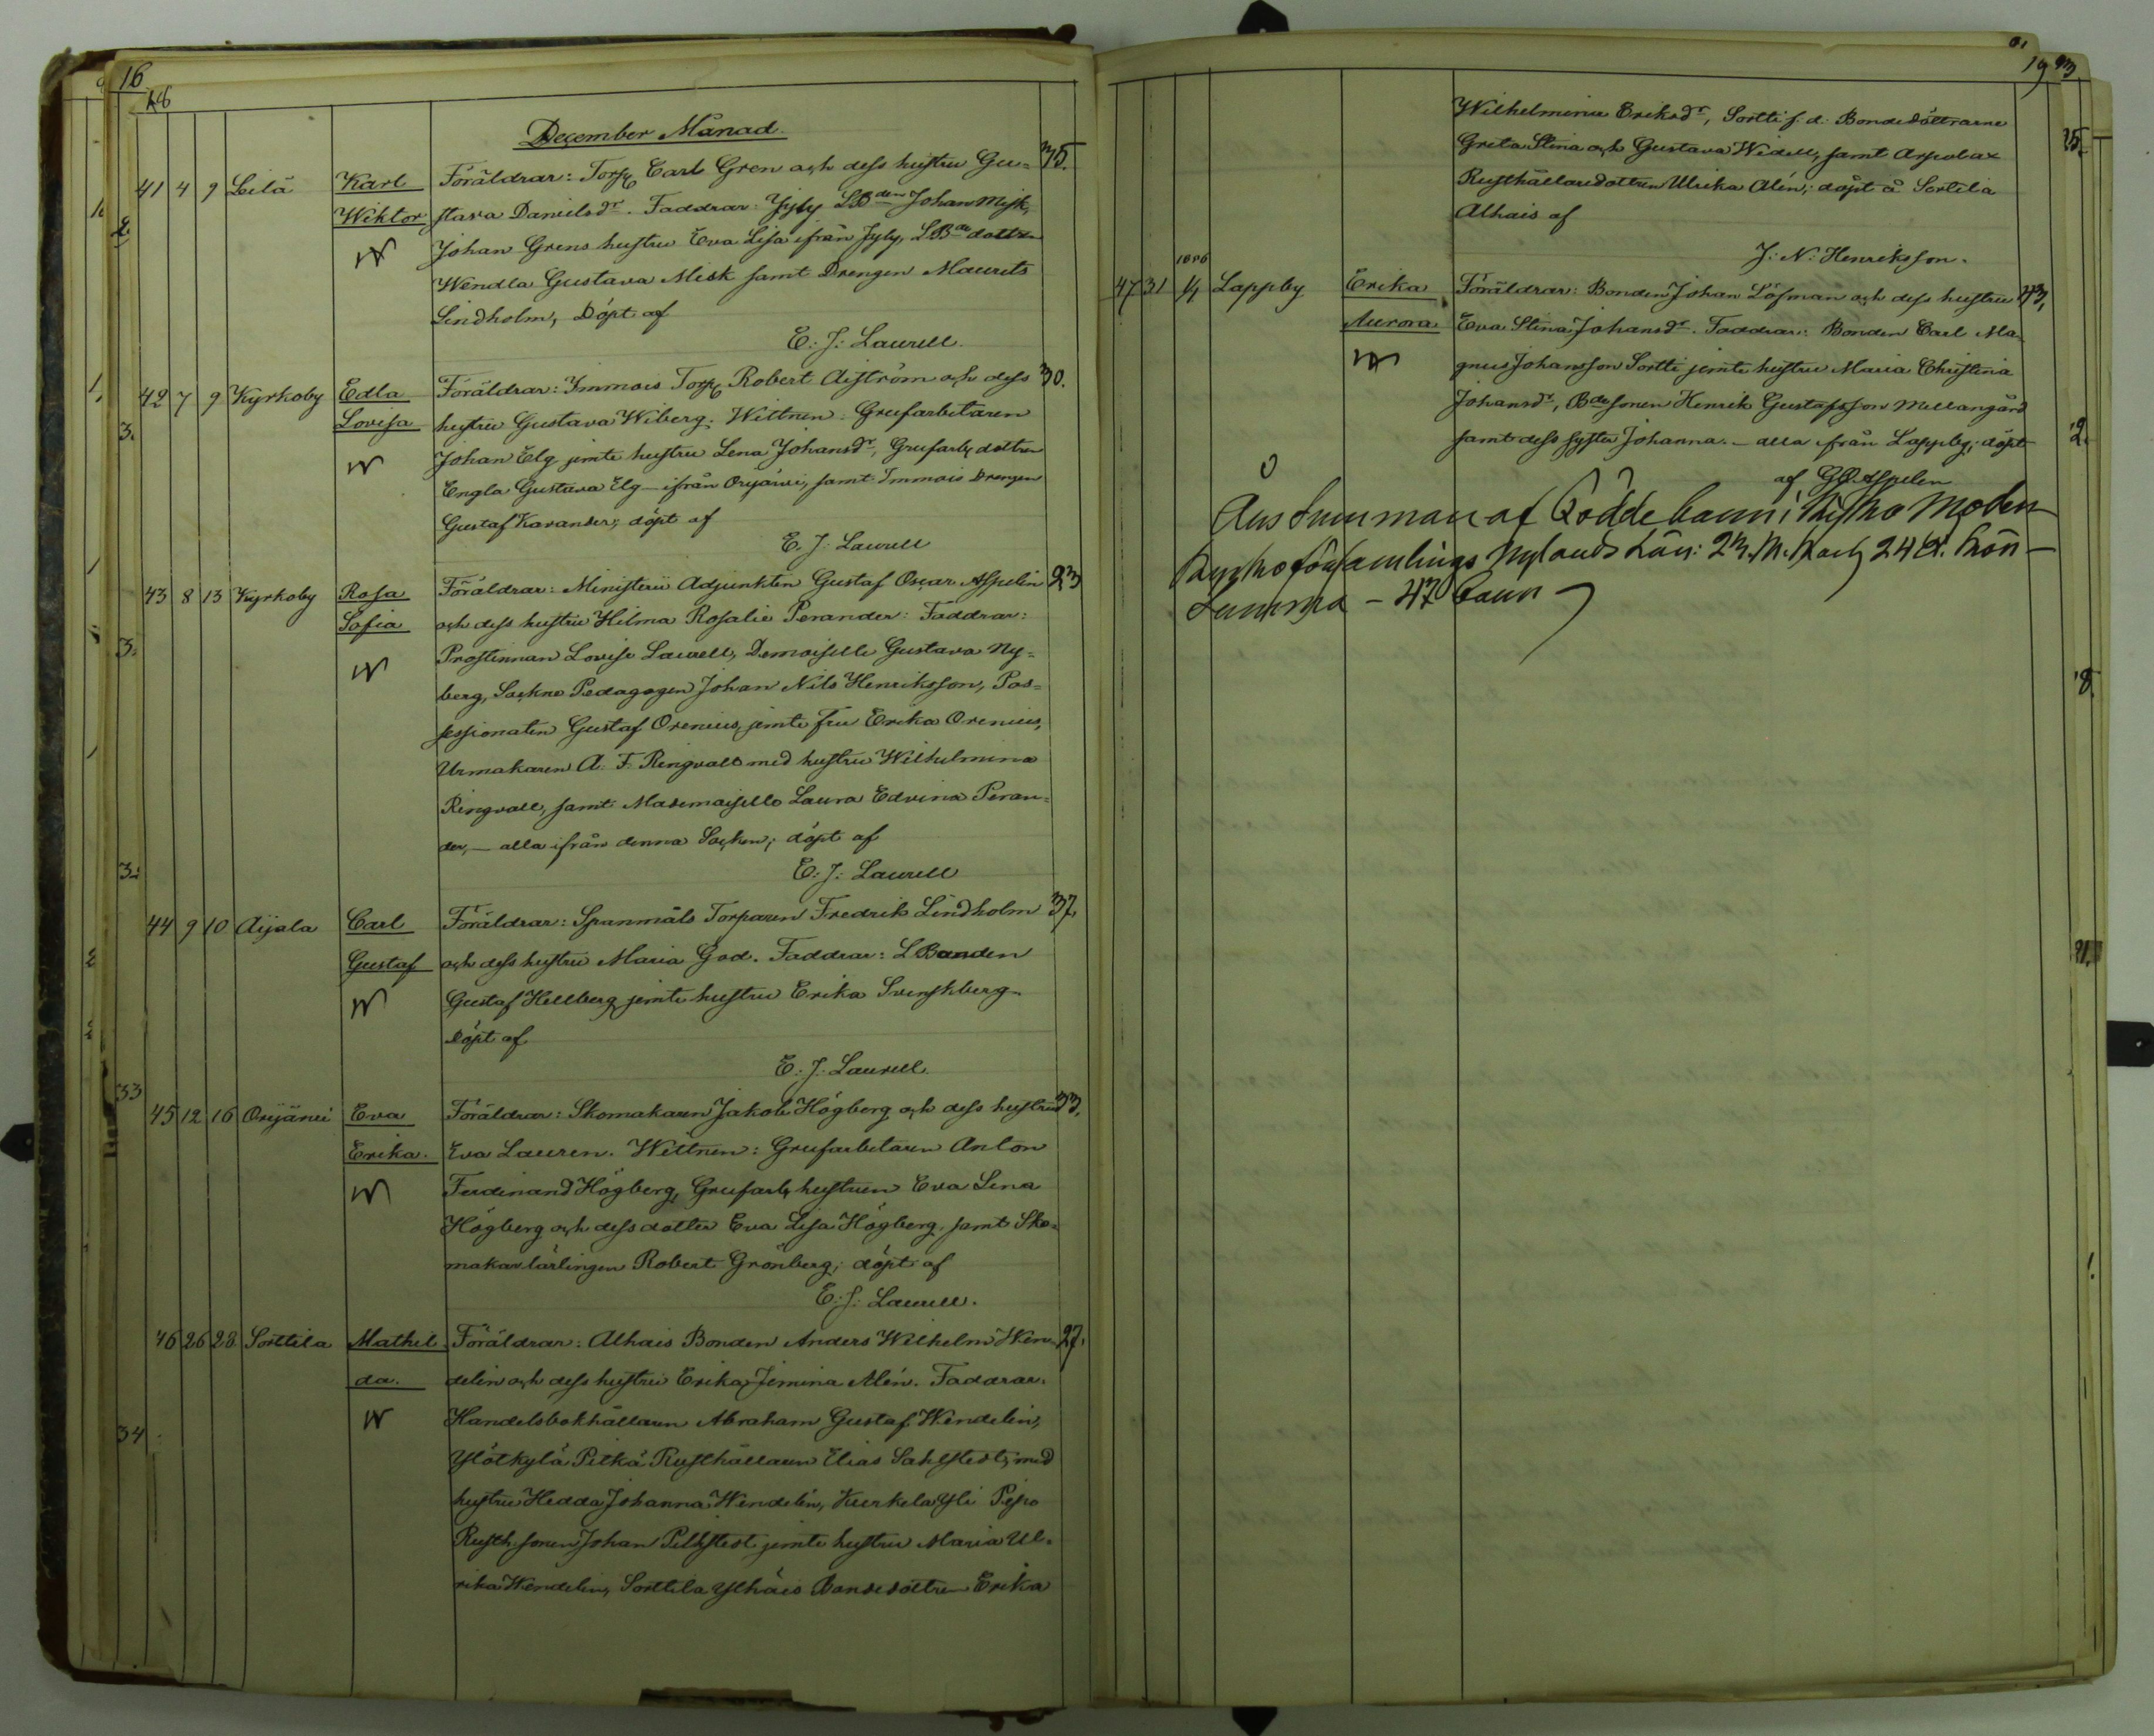 16
December Månad.
41 4 9 Leilä Karl Föräldrar: Torp. Carl Gren och dess hustru Gu= 35.
Wiktor stava Danielsdr. Faddrar: Jyly LBden Johan Misk,
Johan Grens hustru Eva Lisa ifrån Jyly, LBde dottren
Wendla Gustava Misk samt Drengen Maurits
Lindholm, Döpt af
E. J. Laurell.
42 7 9 Kyrkoby Edla Föräldrar: Immois Torp. Robert Aiström och dess 30.
Lovisa hustru Gustava Wiberg. Wittnen: Grufarbetaren
Johan Elg jemte hustru Lena Johansdr, Grufarb. dottren
Engla Gustava Elg – ifrån Orijärvi, samt Immois Drengen
Gustaf Karander; döpt af
E. J. Laurell
43 8 13 Kyrkoby Rosa Föräldrar: Ministerii Adjunkten Gustaf Oscar Aspelin 23
Sofia och dess hustru Hilma Rosalie Perander: Faddrar:
Prostinnan Lovise Laurell, Demoiselle Gustava Ny=
berg, Sockne Pedagogen Johan Nils Henriksson, Pos=
sessionaten Gustaf Orenius, jemte fru Erika Orenius,
Urmakaren A. F. Ringvall med hustru Wilhelmina
Ringvall, samt Mademoiselle Laura Edvina Peran=
der, – alla ifrån denna Socken; döpt af
E. J. Laurell
44 9 10 Aijala Carl Föräldrar: Spanmåls Torparen Fredrik Lindholm 37,
Gustaf och dess hustru Maria God. Faddrar: LBonden
Gustaf Hellberg jemte hustru Erika Svenskberg
Döpt af
E. J. Laurell.
45 12 16 Orijärvi Eva Föräldrar: Skomakaren Jakob Högberg och dess hustru 33,
Erika. Eva Lauren. Wittnen: Grufarbetaren Anton
Ferdinand Högberg, Grufarb. hustrun Eva Lena
Högberg och dess dotter Eva Lisa Högberg, samt Sko=
makarlärlingen Robert Grönberg; döpt af
E. J. Laurell.
46 26 28 Sorttila Mathil Föräldrar: Alhais Bonden Anders Wilhelm Wen= 27,
da. delin och dess hustru Erika Jemina Alén. Faddrar:
Handelsbokhållaren Abraham Gustaf Wendelin,
Ylötkylä Pitkä Rusthållaren Elias Sahlstedt, med
hustru Hedda Johanna Wendelin, Kurkela Yli Pipo
Rusth. sonen Johan Pihlstedt jemte hustru Maria Ul=
rika Wendelin, Sorttila Ylhäis Bondedottren Erika
19
Wilhelmina Eriksdr, Sortti s. d. Bondedöttrarne
Greta Stina och Gustava Widell, samt Arpolax
Rusthållaredottren Ulrika Alén; döpt å Sortila
Alhais af
J. N. Henriksson.
1886
47 31 1/1 Lappby Erika Föräldrar: Bonden Johan Löfman och dess hustru 43,
Aurora. Eva Stina Johansdr. Faddrar: Bonden Carl Ma=
gnus Johansson Sortti jemte hustru Maria Christina
Johansdr, Bdesonen Henrik Gustafsson Mellangård
samt dess syster Johanna – alla ifrån Lappby; döpt
af G. O. Aspelin
Summan af Födde barn i
församlings Nylands Län: 23. M. K. och 24 Q. Kön –
Summa – 47 barn